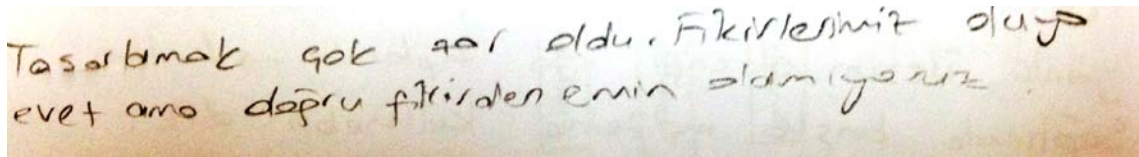 Tasarlamak çok zor oldu. Fikirlerimiz oluyo
evet ama doğru fikirden emin olamıyoruz.